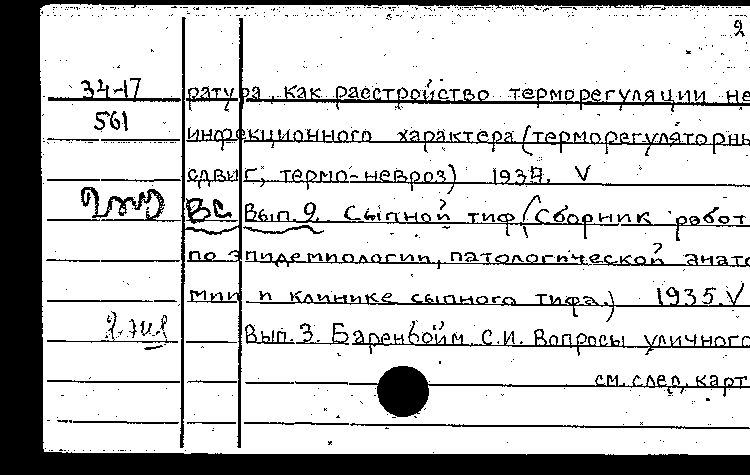 2
34-17 ратура, как расстройство терморегуляции не
561 инфекционного характера (терморегуляторны
сдвиг, термо-невроз) 1937. V
Вс. Вып. 2. Сыпной тиф (Сборник работ
по эпидемиологии, патологической анато
мии и клинике сыпного тифа.) 1935. V
Вып. 3. Баренбойм С.И. Вопросы уличного
см. след. карт